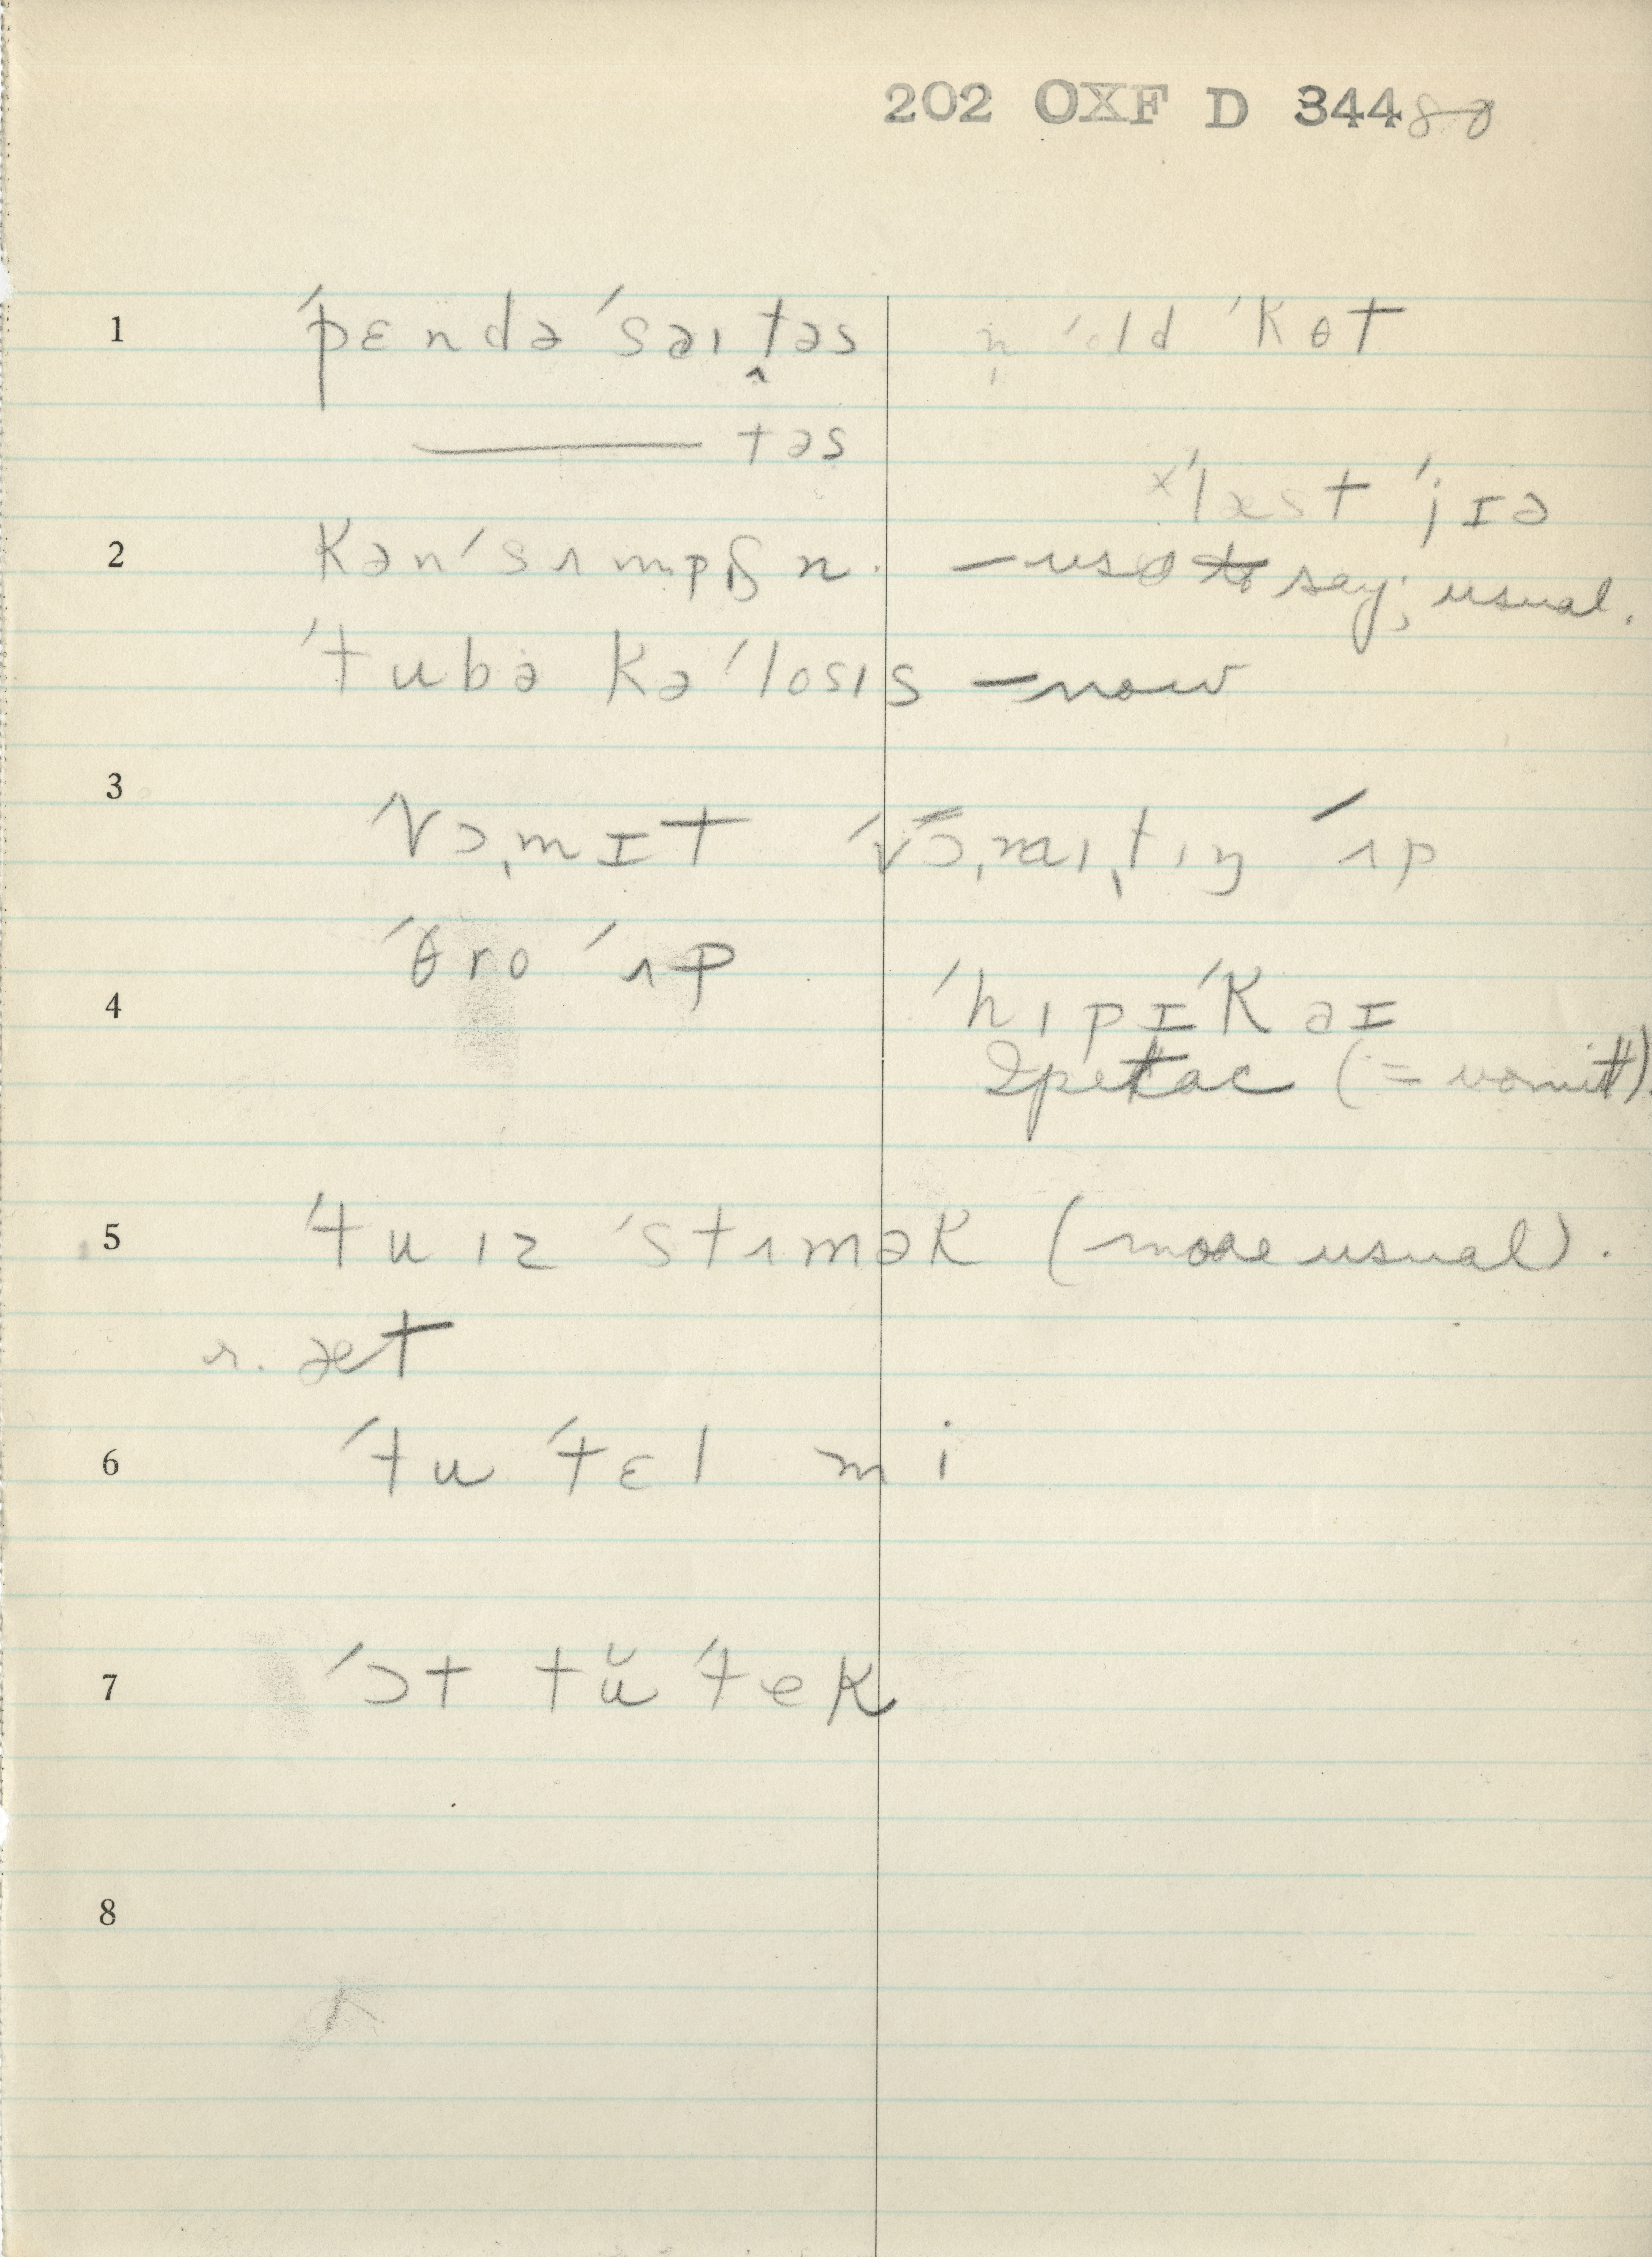 202 OXF D 344
1 ˈpɛndəˈsəɪt̬əs n̩ ˈold ˈkɵt
——— təs
ˣˈlæst ˈjɪə
2 kənˈsʌmpʃn. — used to say; usual.
ˈtubəkəˈlosɪs — now
3 ˈvɔ̩mɪt ˈvɔ̩maɪ̩tɪŋ ˈʌp
ˈθro ˈʌp
4 ˈhɪpɪˈkəɪ
Ipecac (= vomit).
5 ˈtu ɪz ˈstʌmək (more usual).
r. æt
6 ˈtu ˈtɛl mi
7 ˈɔt tŭ ˈtek
8